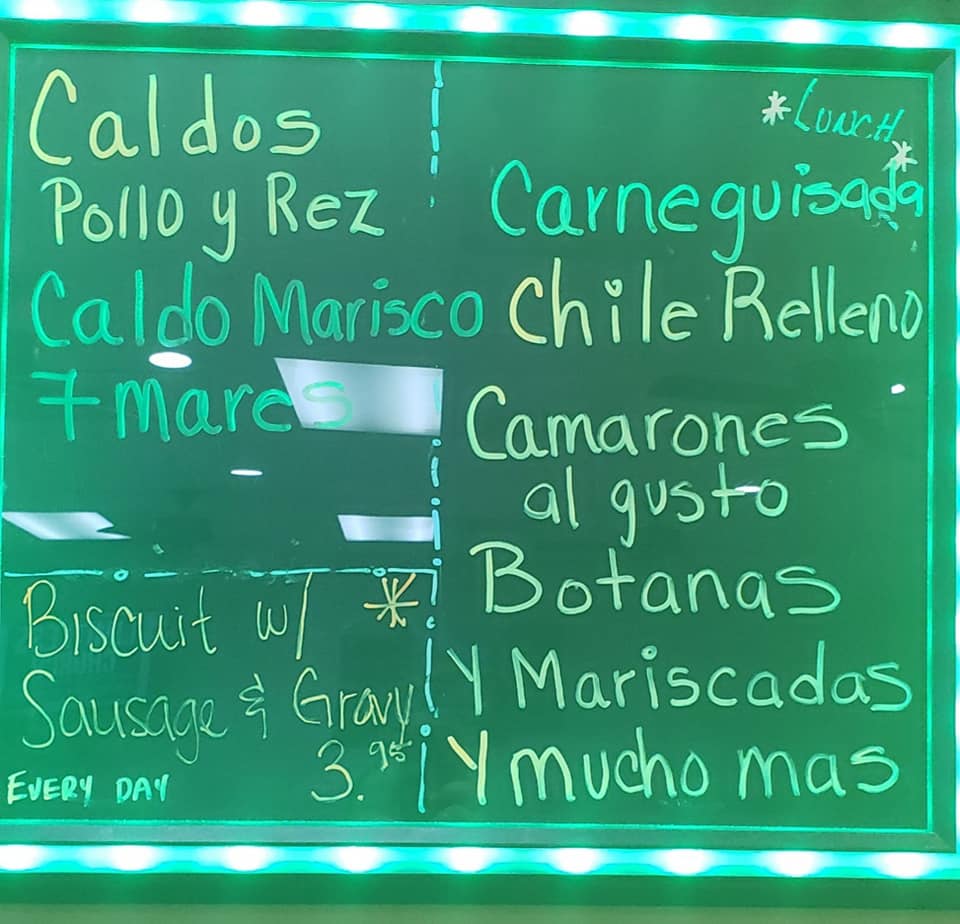 Caldos
Pollo y Rez
Caldo Marisco
7 mares
Biscuit w/ *
Sausage & Gravy
3.95
EVERY DAY
*LUNCH*
Carneguisada
Chile Relleno
Camarones
al gusto
Botanas
Y Mariscadas
Y mucho mas